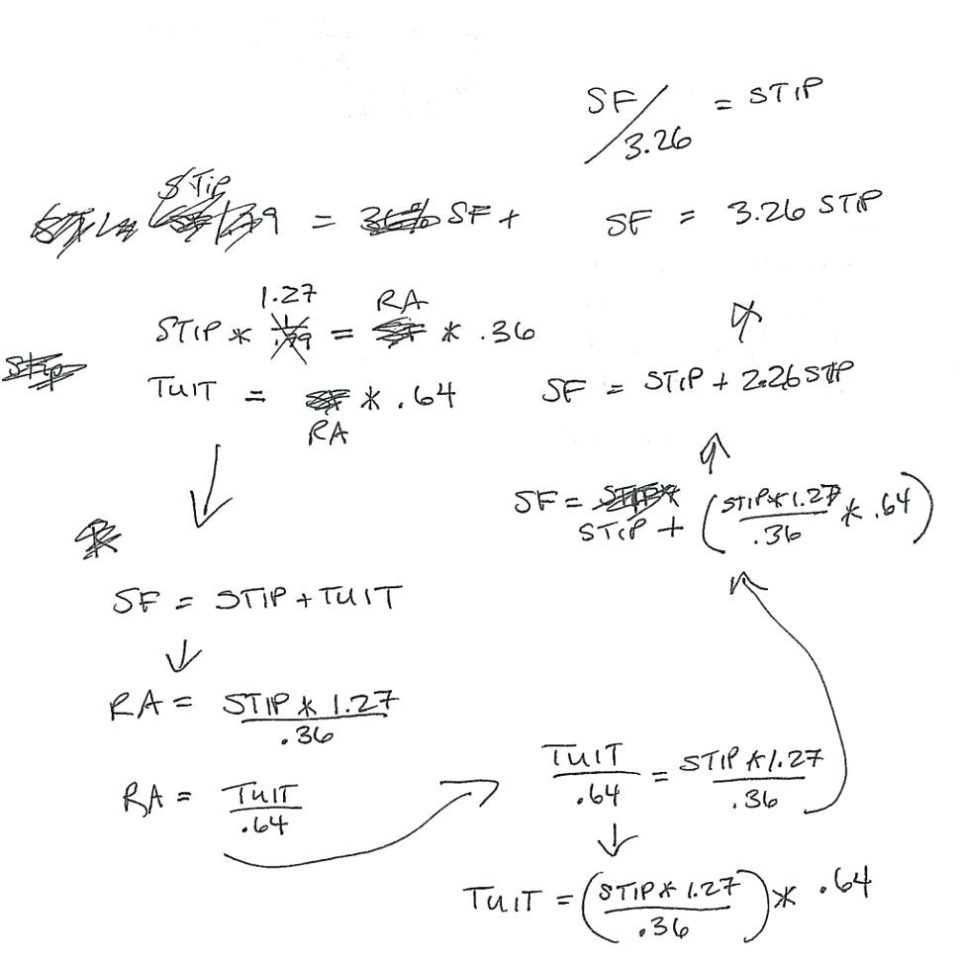 SF/3.26 = STIP
STIP = SF +
SF = 3.26 STIP
STIP * 1.27 = RA * .36
TUIT = RA * .64
SF = STIP + 2.26 STIP
SF = STIP + (STIP * 1.27/.36 * .64)
SF = STIP + TUIT
RA = STIP * 1.27/.36
RA = TUIT/.64
TUIT/.64 = STIP * 1.27/.36
TUIT = (STIP * 1.27/.36) * .64